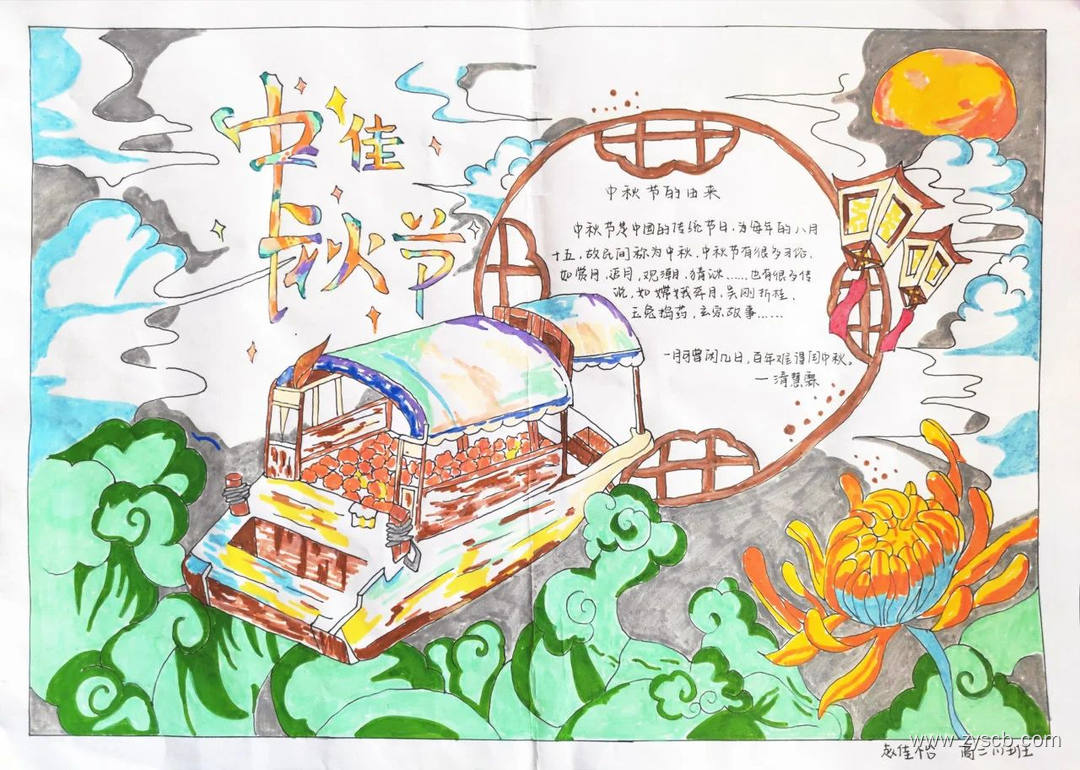 中秋佳节
中秋节的由来
中秋节是中国的传统节日,为每年的八月
十五,故民间称为中秋,中秋节有很多习俗,
如赏月、追月、观潮、猜谜……也有很多传
说,如嫦娥奔月,吴刚折桂,
玉兔捣药,玄宗故事……
一月可曾闲几日,百年难得闰中秋。
—清慧霖
www.zyscb.com
佳怡 高二(1)班